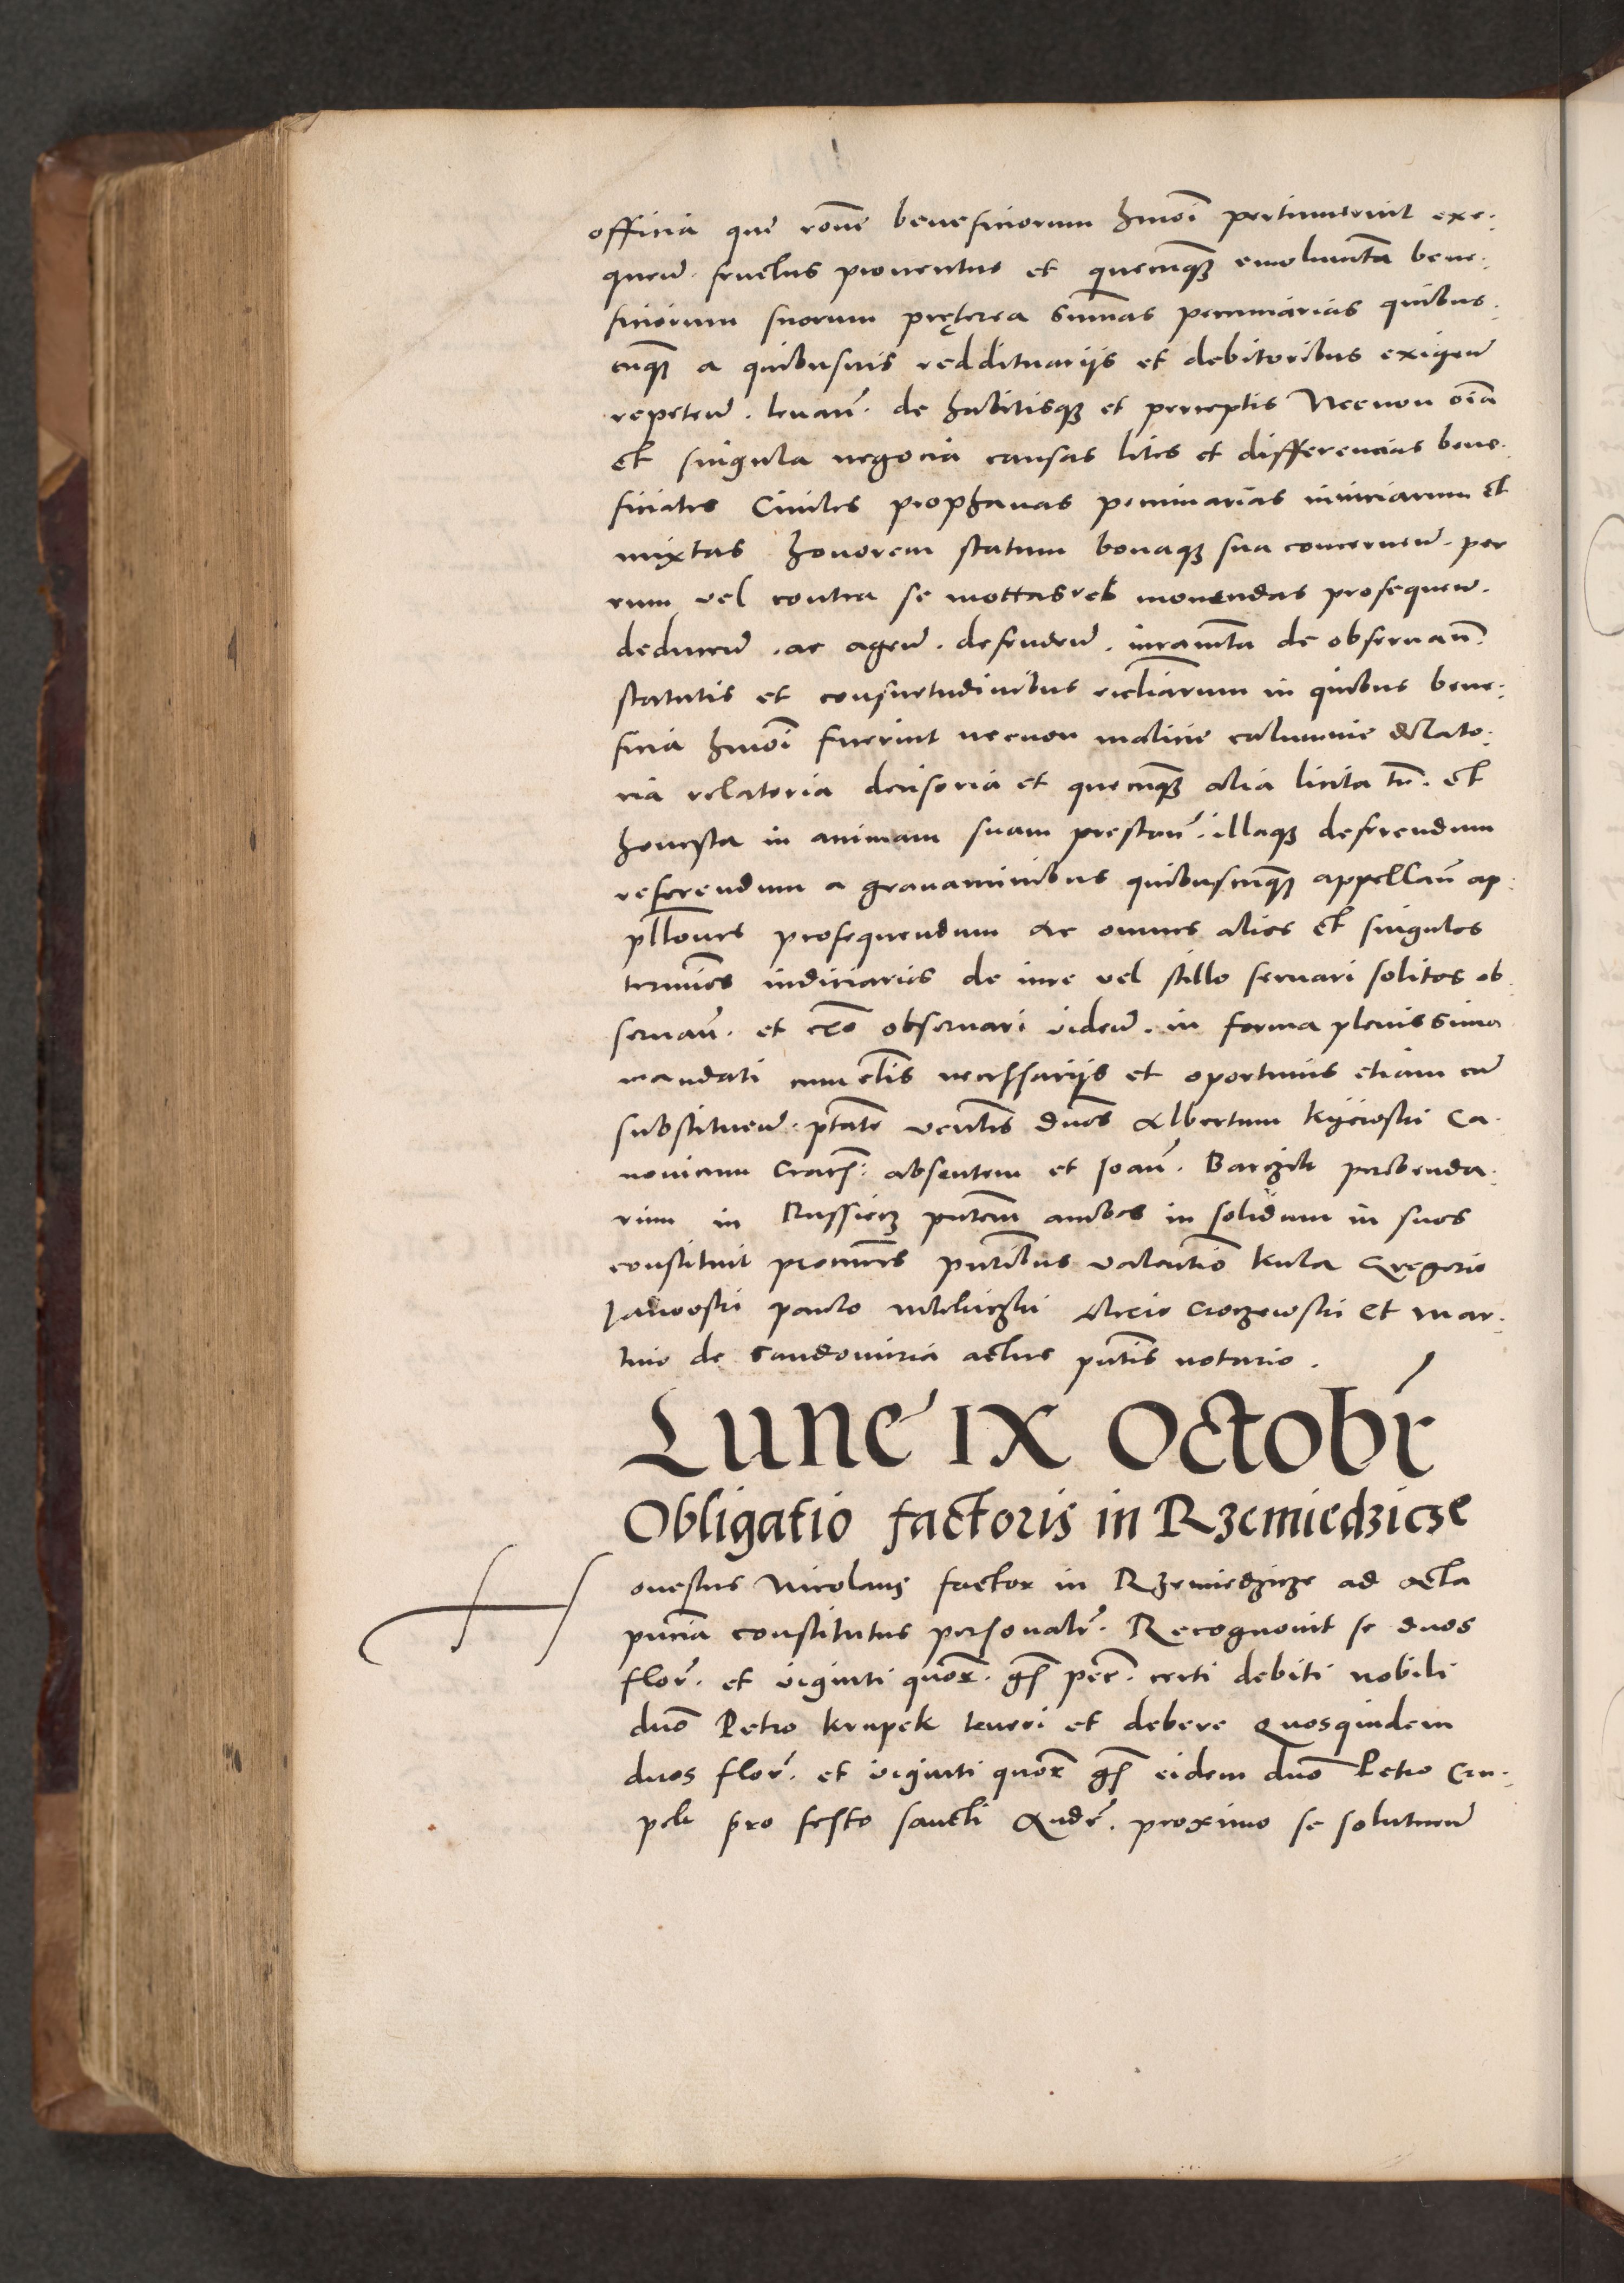 officia que rōne beneficiorum hmōi pertinuerint exe:
queñ. fructus prouentus et quecunq̨ emolumēta bene:
ficiorum suorum pręterea sūmas pecuniarias quibus:
cūq̨ a quibusuis reddituarijs et debitoribus exigeñ
repeteñ. leuañ. de habitisq̨ et perceptis Necnon oīa
et singula negocia causas lites et differencias bene:
ficiales Ciuiles prophanas pecuniarias iniuriarum et
mixtas honorem statum bonaq̨ sua concerneñ. per
eum vel contra se mottas vel mouendas prosequeñ.
deduceñ. ac ageñ. defendeñ. iuramēta de obseruañ.
statutis et consuetudinibus eccliarum in quibus bene:
ficia hmōi fuerint necnon malicie calumnie dilato:
ria relatoria decisoria et quecunq̨ alia licita tñ. et
honesta in animam suam prestañ. illaq̨ deferendum
referendum a grauaminibus quibuscunq̨ appellañ ap:
pllōnes prosequendum Ac omnes alios et singulos
termīos iudiciarios de iure vel stillo seruari solitos ob
seruañ. et eos observari videñ. in forma plenissima
mandati cum clīs necessarijs et oportunis etiam cū
substitueñ. ptāte veñlis dños Albertum Kijewski Ca:
nonicum Cracoᷤ. absentem et Joañ. Barczik prebenda:
rium in Russiecz pñtem ambos in solidum in suos
constituit procūres pñtibus valentīo Kula Gregorio
Janowski paulo Mchiczki Alexio Croczewski et Mar:
tino de Sandomiria actus pñtis notario.
Lune IX Octobr̄
Obligatio factoris in Rzemiedzicze
Honestus Nicolaus factor in Rzemiedzicze ad acta
pñcia constitutus personalr̄. Recognouit se duos
flor̄. et viginti quor̄. gᷤ pec̄. certi debiti nobili
dño Petro Krupek teneri et debere Quosquidem
duos flor̄. et viginti quor̄ gᷤ eidem dño Petro Cru:
pek pro festo sancti Andr̄. proximo se soluturuū